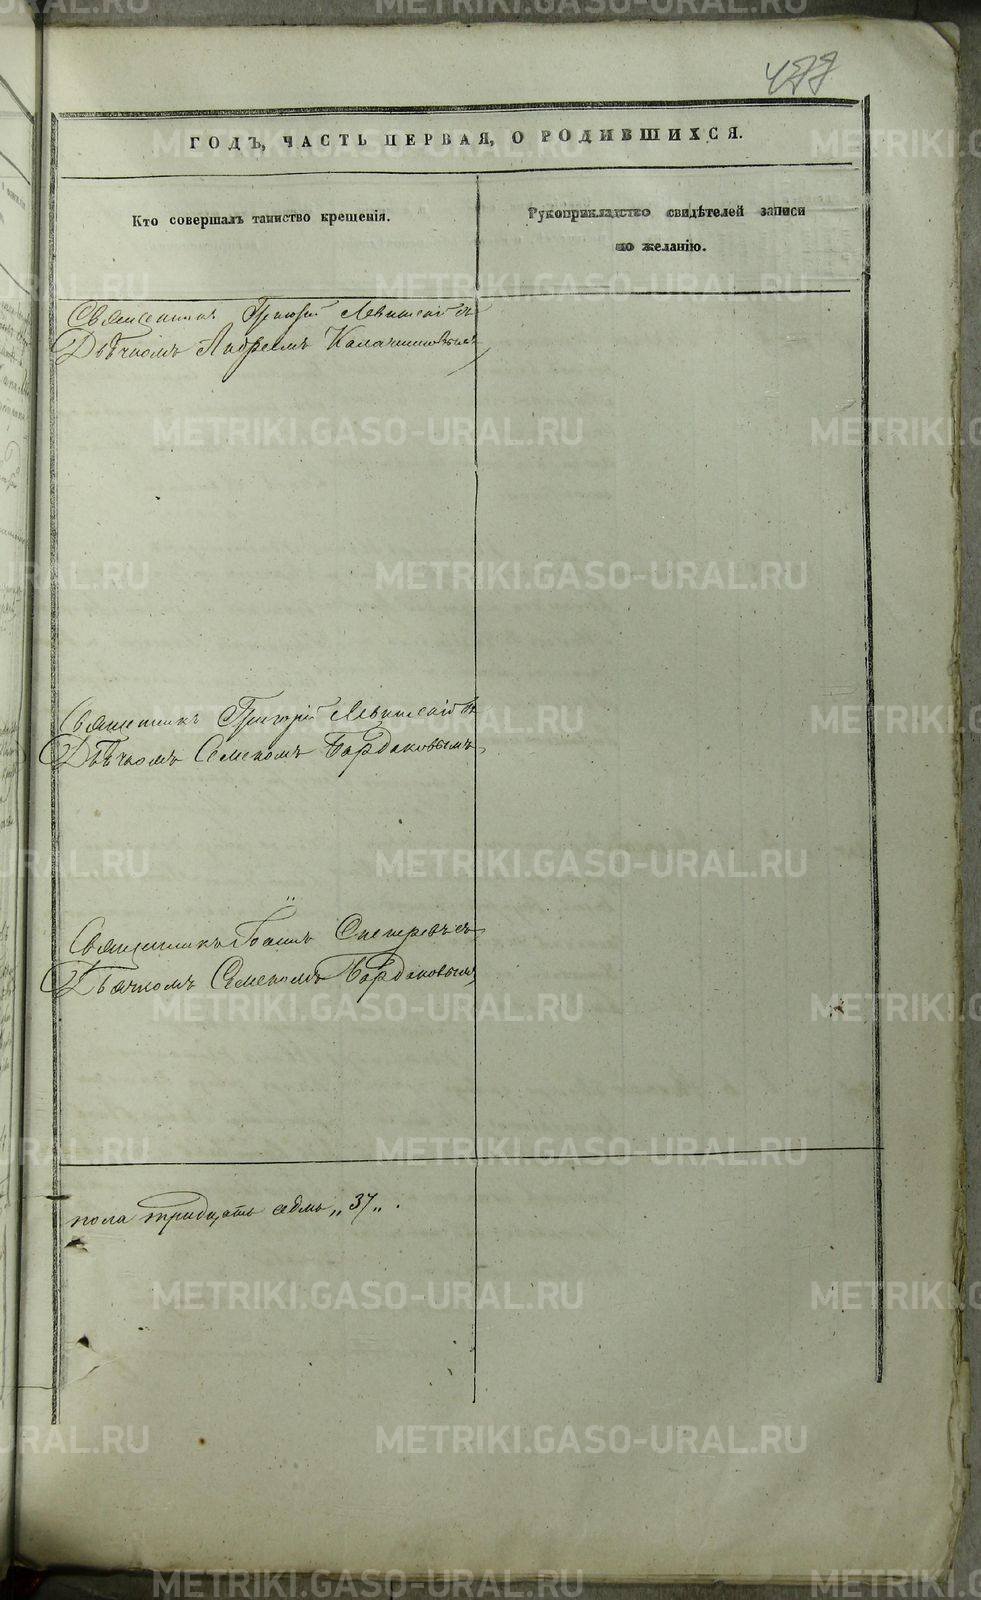 477
ГОДЪ, ЧАСТЬ ПЕРВАЯ, О РОДИВШИХСЯ.
Кто совершалъ таинство крещенія.
Рукоприкладство свидѣтелей записи
по желанію.
Священникъ Григорій Левитскій съ
Дьячкомъ Андреемъ Калачниковымъ
Священникъ Григорій Левитскій съ
Дьячкомъ Семеномъ Бардаковымъ
Священникъ Іоаннъ Снегиревъ съ
Дьячкомъ Семеномъ Бардаковымъ
пола тридцать седмь „37„.
METRIKI.GASO-URAL.RU